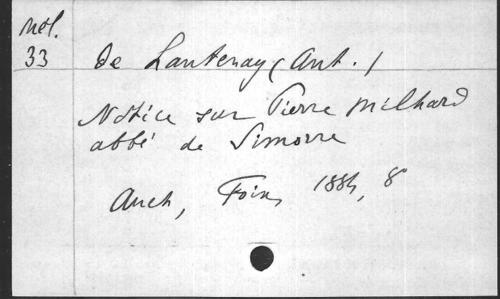 Mél.
33
de Lantenay (Ant.)
Notice sur Pierre Milhard
abbé de Simorre
Auch, Foix, 1884, 8°